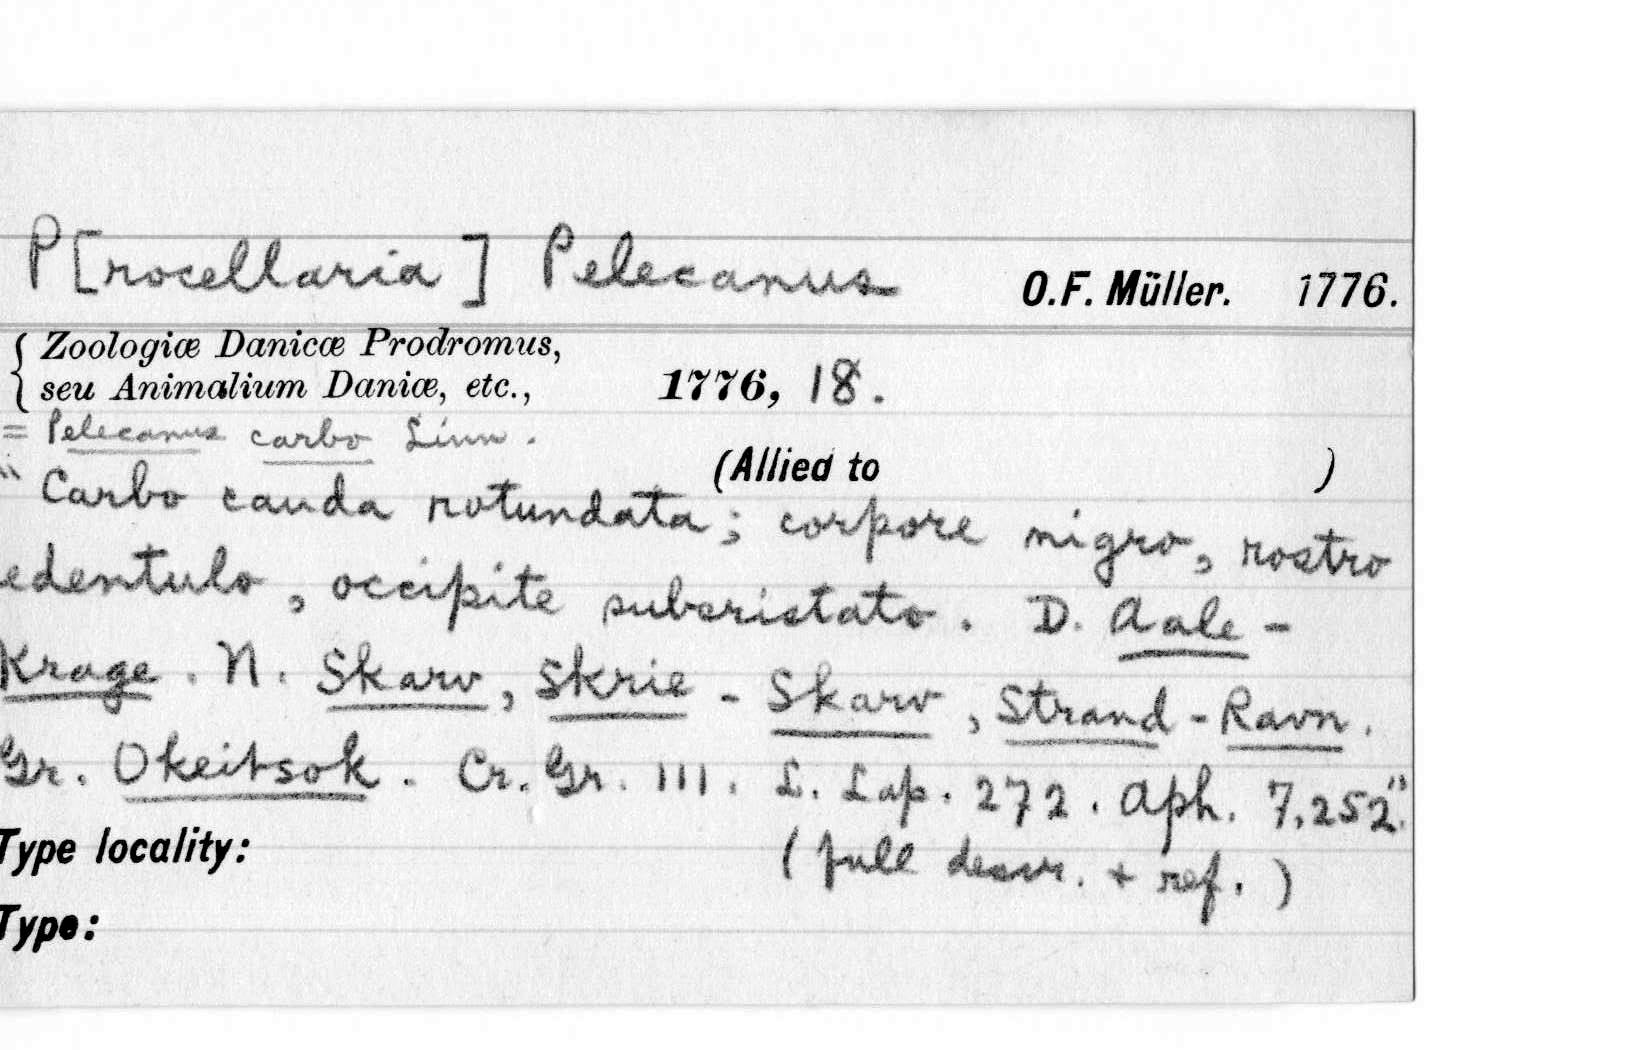 P[rocellaria] Pelecanus O.F. Müller. 1776.
{ Zoologiæ Danicæ Prodromus,
seu Animalium Daniæ, etc., 1776, 18.
= Pelecanus carbo Linn.
(Allied to )
"Carbo cauda rotundata; corpore nigro, rostro
edentulo, occipite subcristato. D. Aale-
Krage. N. Skarv, Skrie-Skarv, Strand-Ravn.
Gr. Okeitsok. Cr. Gr. 111. L. Lap. 272. Aph. 7,252".
Type locality: (full descr. + ref.)
Type: